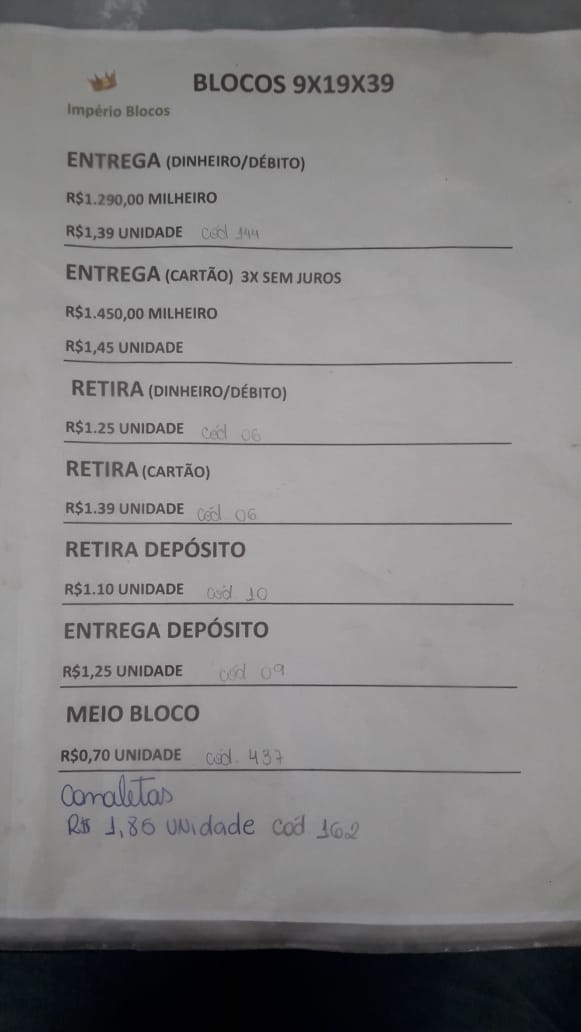 BLOCOS 9X19X39
Império Blocos
ENTREGA (DINHEIRO/DÉBITO)
R$1.290,00 MILHEIRO
R$1,39 UNIDADE cód 144
ENTREGA (CARTÃO) 3X SEM JUROS
R$1.450,00 MILHEIRO
R$1,45 UNIDADE
RETIRA (DINHEIRO/DÉBITO)
R$1.25 UNIDADE cód 06
RETIRA (CARTÃO)
R$1.39 UNIDADE cód 06
RETIRA DEPÓSITO
R$1.10 UNIDADE cód 10
ENTREGA DEPÓSITO
R$1,25 UNIDADE cód 09
MEIO BLOCO
R$0,70 UNIDADE cód. 437
Canaletas
R$ 1,86 UNidade cód 162